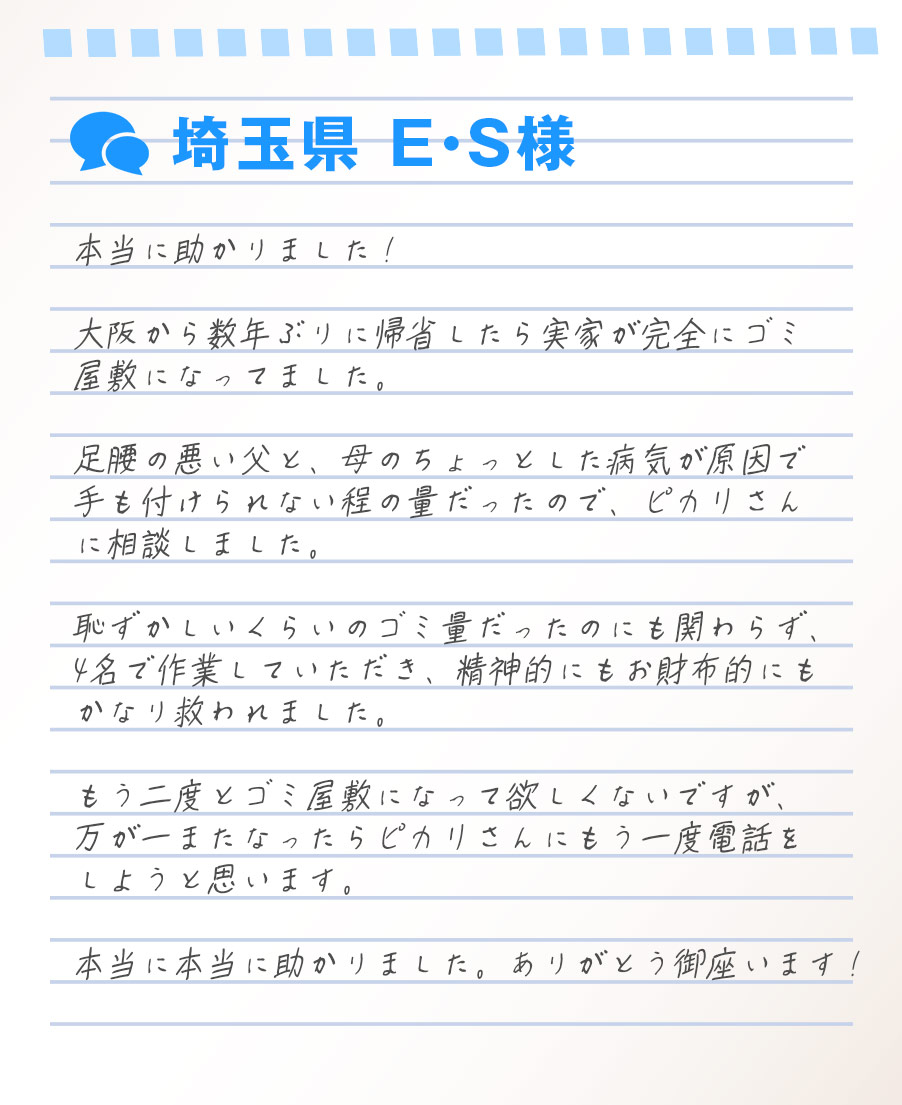 埼玉県 E・S様
本当に助かりました！
大阪から数年ぶりに帰省したら実家が完全にゴミ
屋敷になってました。
足腰の悪い父と、母のちょっとした病気が原因で
手も付けられない程の量だったので、ピカリさん
に相談しました。
恥ずかしいくらいのゴミ量だったのにも関わらず、
4名で作業していただき、精神的にもお財布的にも
かなり救われました。
もう二度とゴミ屋敷になって欲しくないですが、
万が一またなったらピカリさんにもう一度電話を
しようと思います。
本当に本当に助かりました。ありがとう御座います！